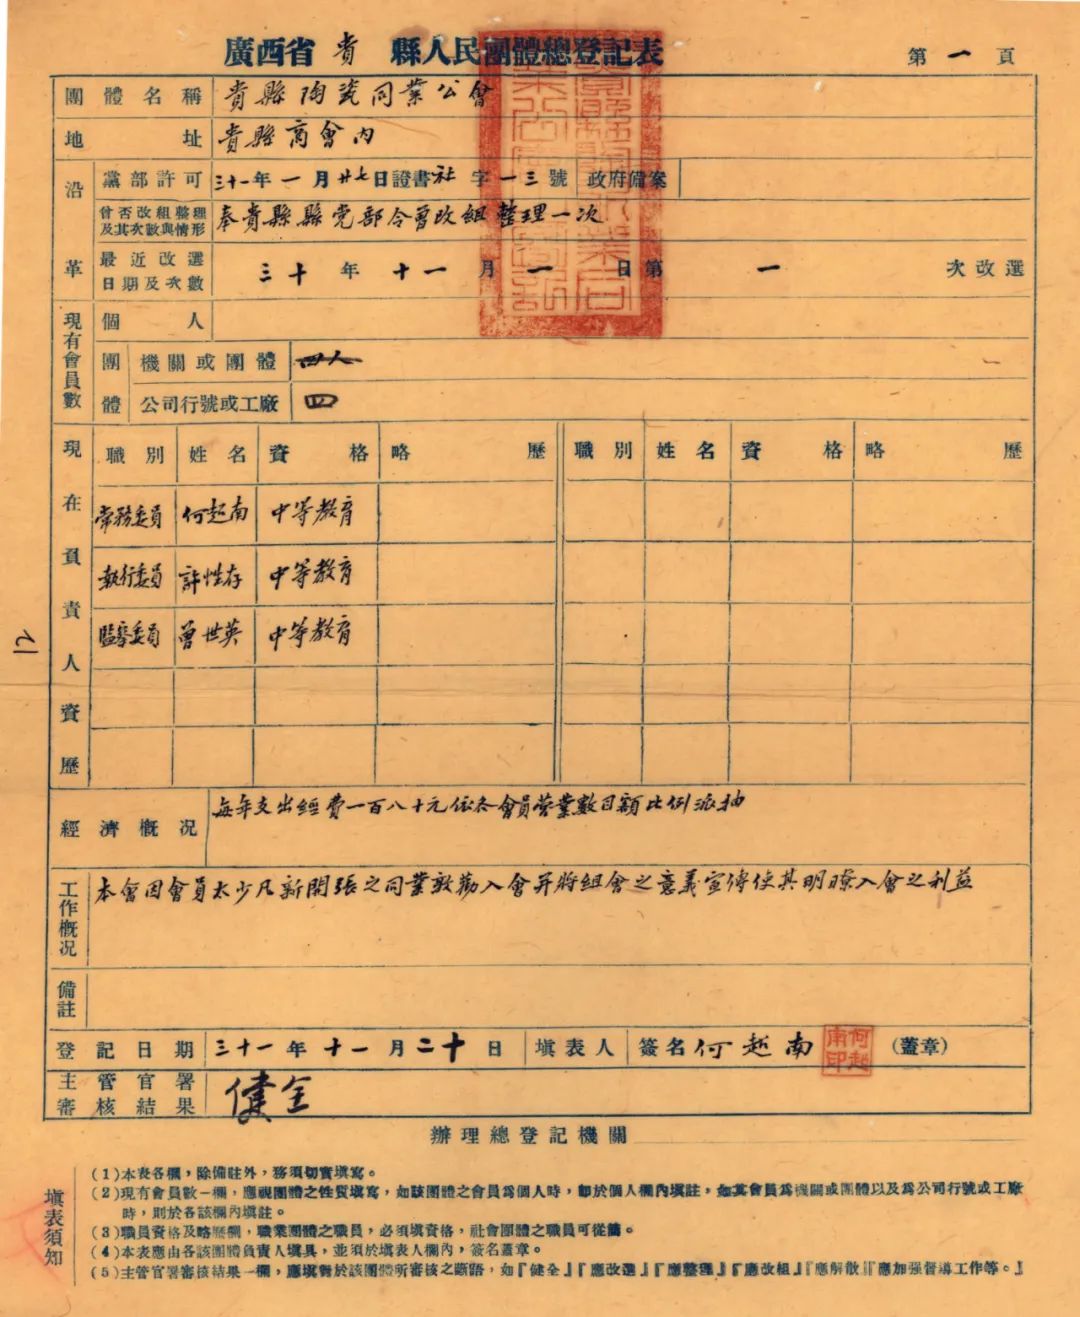 廣西省貴縣人民團體總登記表
第一頁
團體名稱 貴縣陶瓷同業公會
地址 貴縣商會內
沿革
黨部許可 三十一年一月廿七日證書社字一三號 政府備案
曾否改組整理及其次數與情形 奉貴縣縣党部令曾改組整理一次
最近改選日期及次數 三十年十一月一日第一次改選
現有會員數
個人
團體
機關或團體 四人
公司行號或工廠 四
現在負責人資歷
職別 姓名 資格 略歷 職別 姓名 資格 略歷
常務委員 何起南 中等教育
執行委員 許性存 中等教育
監察委員 曾世英 中等教育
經濟概況 每年支出經費一百八十元依各會員營業數目額比例派抽
工作概況 本會因會員太少凡新開張之同業敦勸入會并將組會之意義宣傳使其明瞭入會之利益
備註
登記日期 三十一年十一月二十日 填表人 簽名 何越南 (蓋章)
何起南印
主管官署審核結果 健全
辦理總登記機關
填表須知
(1)本表各欄，除備註外，務須切實填寫。
(2)現有會員數一欄，應視團體之性質填寫，如該團體之會員為個人時，卽於個人欄內填註，如其會員為機關或團體以及為公司行號或工廠
時，則於各該欄內填註。
(3)職員資格及略歷欄，職業團體之職員，必須填資格，社會團體之職員可從簡。
(4)本表應由各該團體負責人填具，並須於填表人欄內，簽名蓋章。
(5)主管官署審核結果一欄，應填對於該團體所審核之斷語，如『健全』『應改選』『應整理』『應改組』『應解散』『應加强督導工作等。』